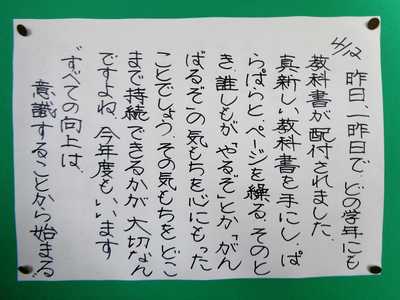 4/12 昨日、一昨日で、どの学年にも
教科書が配付されました。
真新しい教科書を手にし、ぱ
らぱらと、ページを繰る。そのと
き、誰しもが「やるぞ」とか「がん
ばるぞ」の気もちを心にもった
ことでしょう。その気もちをどこ
まで持続できるかが大切なん
ですよね。今年度もいいます
“すべての向上は、
意識することから始まる”